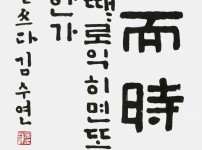 而時
때로익히면또
한가
쓰다 김수연